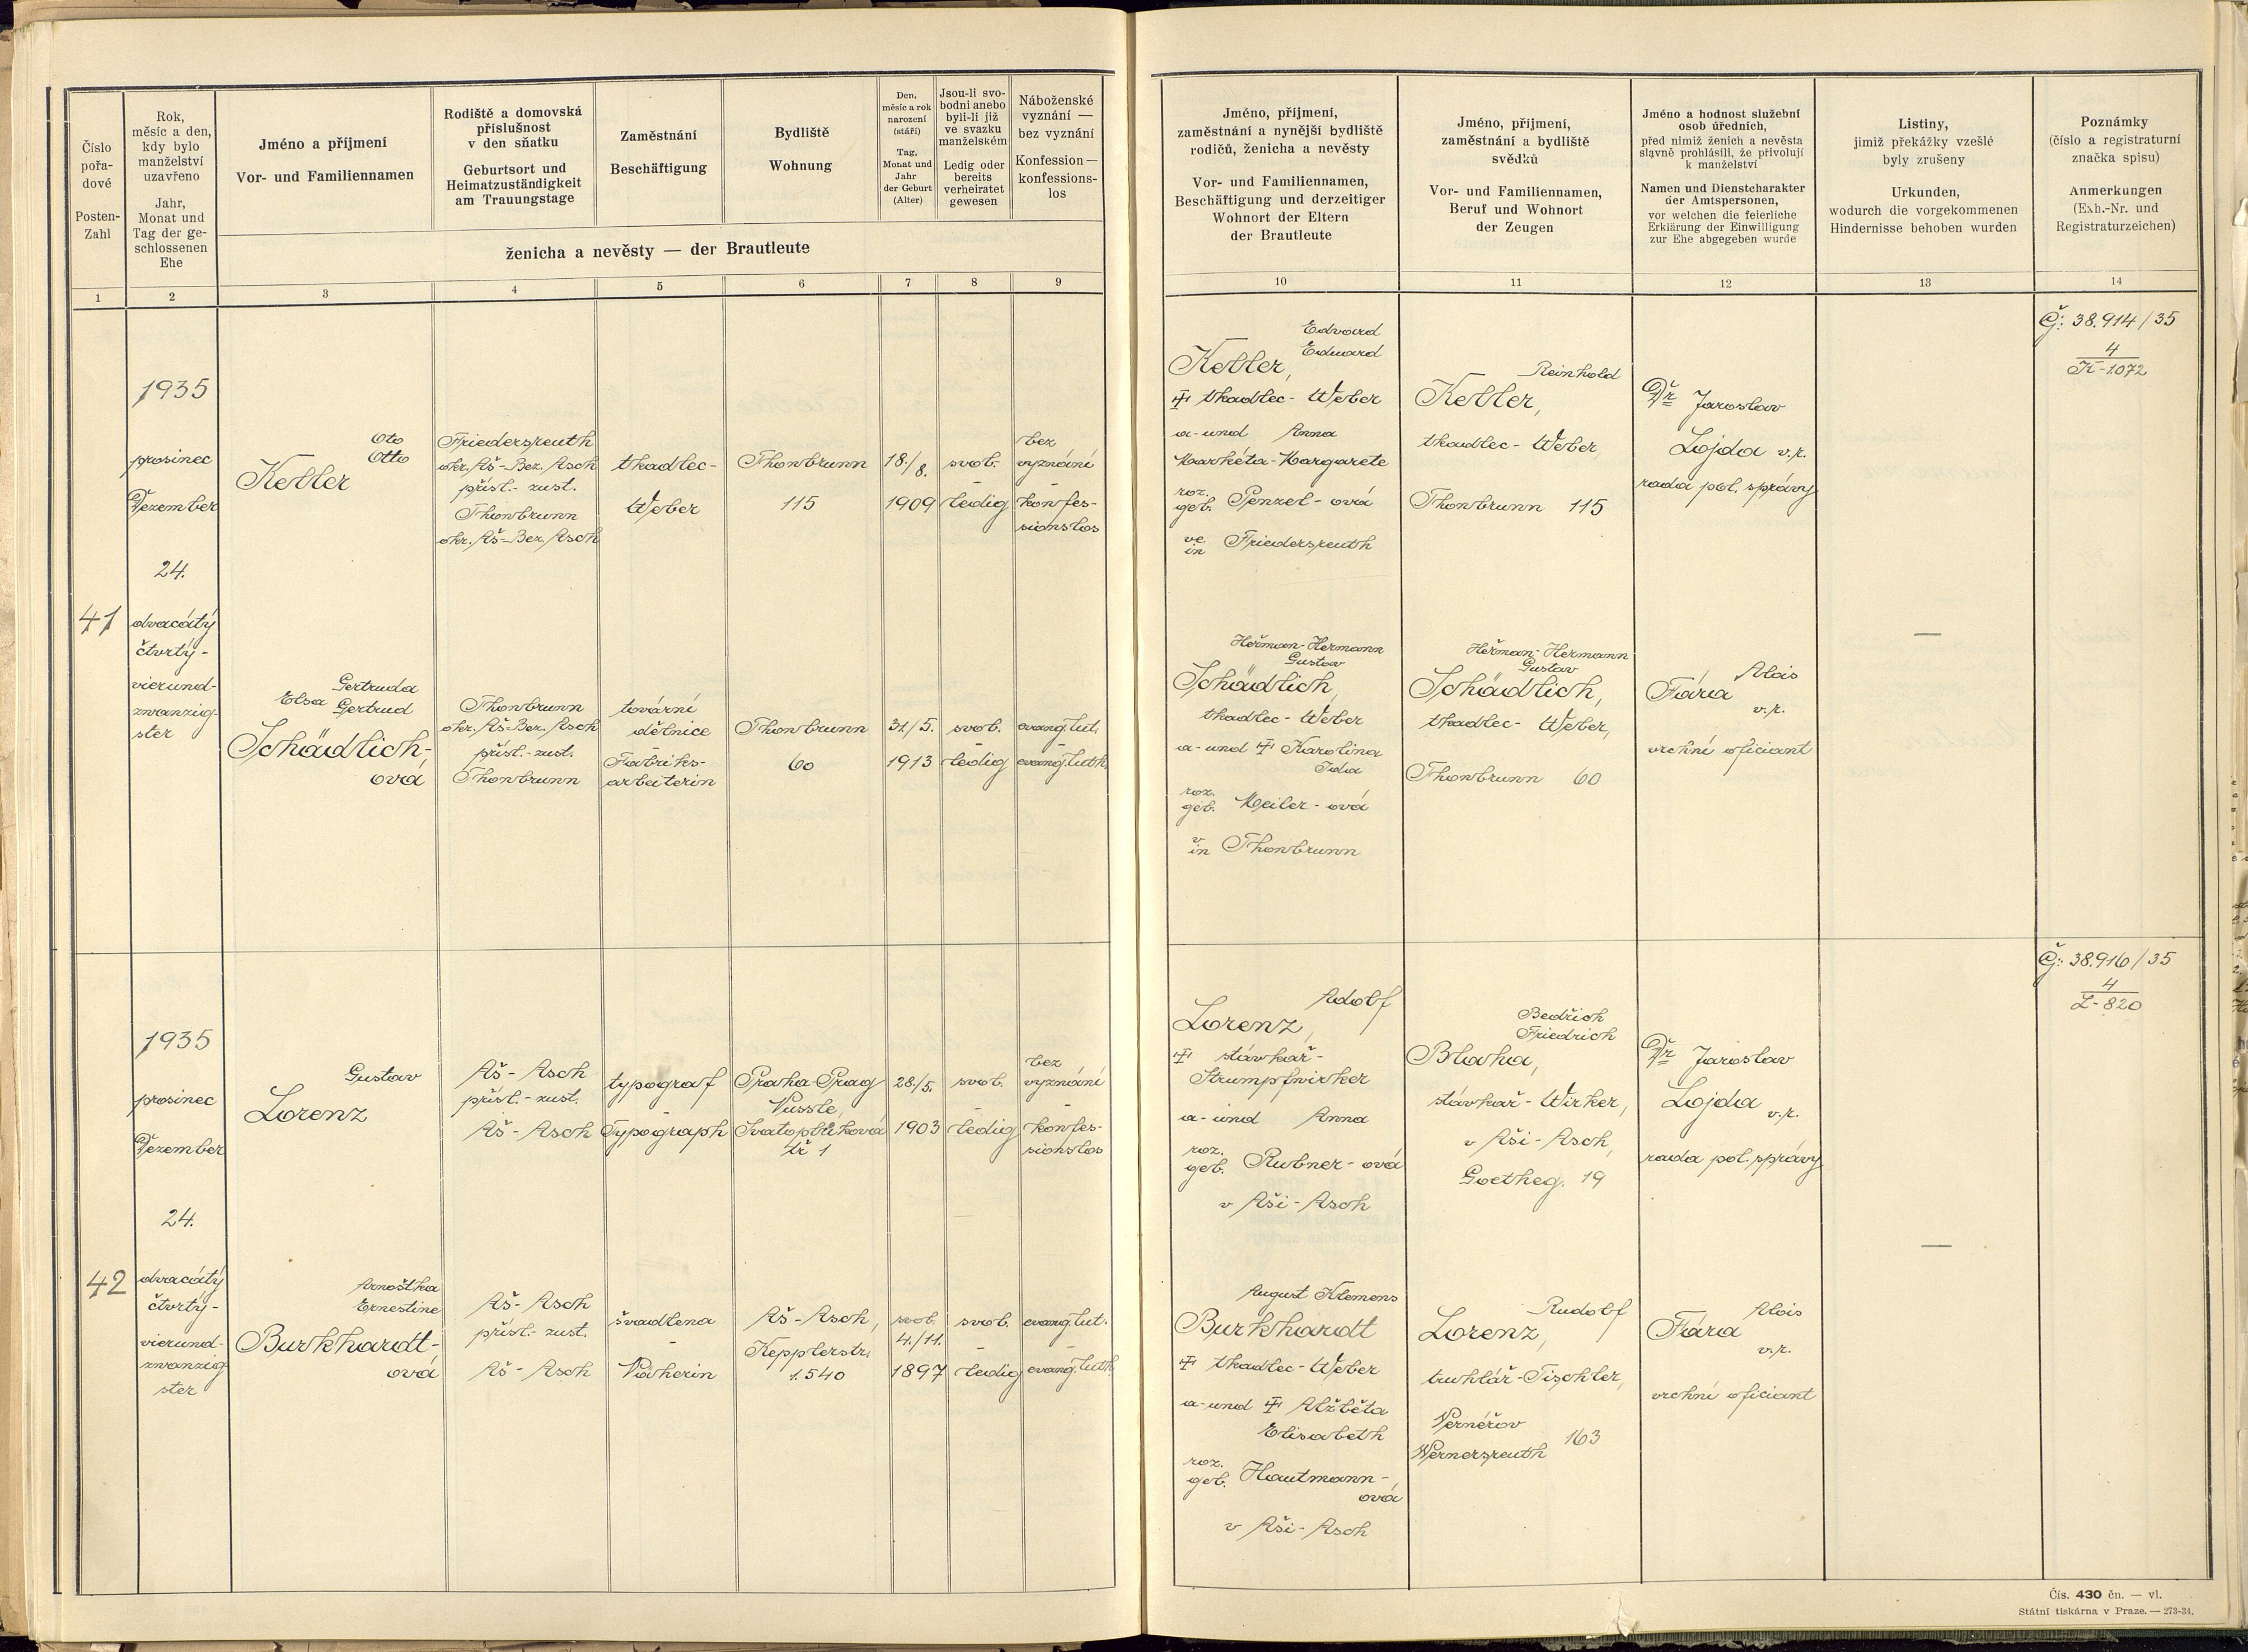 Číslo
pořa-
dové
Posten-
Zahl
Rok,
měsíc a den,
kdy bylo
manželství
uzavřeno
Jahr,
Monat und
Tag der ge-
schlossenen
Ehe
Jméno a příjmení
Vor- und Familiennamen
Rodiště a domovská
příslušnost
v den sňatku
Geburtsort und
Heimatzuständigkeit
am Trauungstage
Zaměstnání
Beschäftigung
Bydliště
Wohnung
Den,
měsíc a rok
narození
(stáří)
Tag,
Monat und
Jahr
der Geburt
(Alter)
Jsou-li svo-
bodni anebo
byli-li již
ve svazku
manželském
Ledig oder
bereits
verheiratet
gewesen
Náboženské
vyznání —
bez vyznání
Konfession —
konfessions-
los
ženicha a nevěsty — der Brautleute
Jméno, příjmení,
zaměstnání a nynější bydliště
rodičů, ženicha a nevěsty
Vor- und Familiennamen,
Beschäftigung und derzeitiger
Wohnort der Eltern
der Brautleute
Jméno, příjmení,
zaměstnání a bydliště
svědků
Vor- und Familiennamen,
Beruf und Wohnort
der Zeugen
Jméno a hodnost služební
osob úředních,
před nimiž ženich a nevěsta
slavně prohlásili, že přivolují
k manželství
Namen und Dienstcharakter
der Amtspersonen,
vor welchen die feierliche
Erklärung der Einwilligung
zur Ehe abgegeben wurde
Listiny,
jimiž překážky vzešlé
byly zrušeny
Urkunden,
wodurch die vorgekommenen
Hindernisse behoben wurden
Poznámky
(číslo a registraturní
značka spisu)
Anmerkungen
(Exh.-Nr. und
Registraturzeichen)
1 2 3 4 5 6 7 8 9 10 11 12 13 14
41
1935
prosinec
Dezember
24.
dvacátý
čtvrtý-
vierund-
zwanzig-
ster
Oto
Otto
Ketler
Friedersreuth
okr. Aš-Bez. Asch
přísl.- zust.
Thonbrunn
okr. Aš-Bez. Asch
tkadlec-
Weber
Thonbrunn
115
18./8.
1909
svob.
-
ledig
bez
vyznání
-
konfes-
sionslos
Edvard
Eduard
Ketler,
† tkadlec- Weber
a-und Anna
Markéta-Margarete
roz.
geb. Penzel- ová
ve
in Friedersreuth
Reinhold
Ketler,
tkadlec- Weber,
Thonbrunn 115
Dr Jaroslav
Lojda v.r.
rada pol. správy
Č: 38.914/35
4
K-1072
Gertruda
Elsa Gertrud
Schädlich-
ová
Thonbrunn
okr. Aš-Bez. Asch
přísl.- zust.
Thonbrunn
tovární
dělnice
-
Fabriks-
arbeiterin
Thonbrunn
60
31/5.
1913
svob.
-
ledig
evang. lut.
-
evang. luth.
Heřman-Hermann
Gustav
Schädlich,
tkadlec- Weber
a-und † Karolina
Ida
roz.
geb. Meiler- ová
v
in Thonbrunn
Heřman-Hermann
Gustav
Schädlich,
tkadlec- Weber,
Thonbrunn 60
Alois
Fára
v.r.
vrchní oficiant
—
42
1935
prosinec
Dezember
24.
dvacátý
čtvrtý-
vierund-
zwanzig
ster
Gustav
Lorenz
Aš- Asch
přísl.- zust.
Aš- Asch
typograf
-
Typograph
Praha-Prag
Vussle,
Svatopluková
tř 1
28./5.
1903
svob.
-
ledig
bez
vyznání
-
konfes-
sionslos
Adolf
Lorenz,
† stávkař-
Strumpfwirker
a-und Anna
roz.
geb. Rubner- ová
v Aši- Asch
Bedřich
Friedrich
Blaha,
stávkař- Wirker,
v Aši- Asch,
Goetheg. 19
Dr Jaroslav
Lojda v.r.
rada pol. správy
Č: 38.916/35
4
L-820
Arnoštka
Ernestine
Burkhardt-
ová
Aš- Asch
přísl.- zust.
Aš- Asch
švadlena
-
Näherin
Aš-Asch,
Kepplerstr.
1.540
svob.
4./11.
1897
svob.
-
ledig
evang. lut.
-
evang. luth.
August Klemens
Burkhardt
† tkadlec-Weber
a-und † Alžběta
Elisabeth
roz.
geb. Hautmann-
ová
v Aši- Asch
Rudolf
Lorenz,
truhlář-Tischler,
Vernéřov
Wernersreuth 163
Alois
Fára
v.r.
vrchní oficiant
—
Čís. 430 čn. — vl.
Státní tiskárna v Praze. — 273-34.